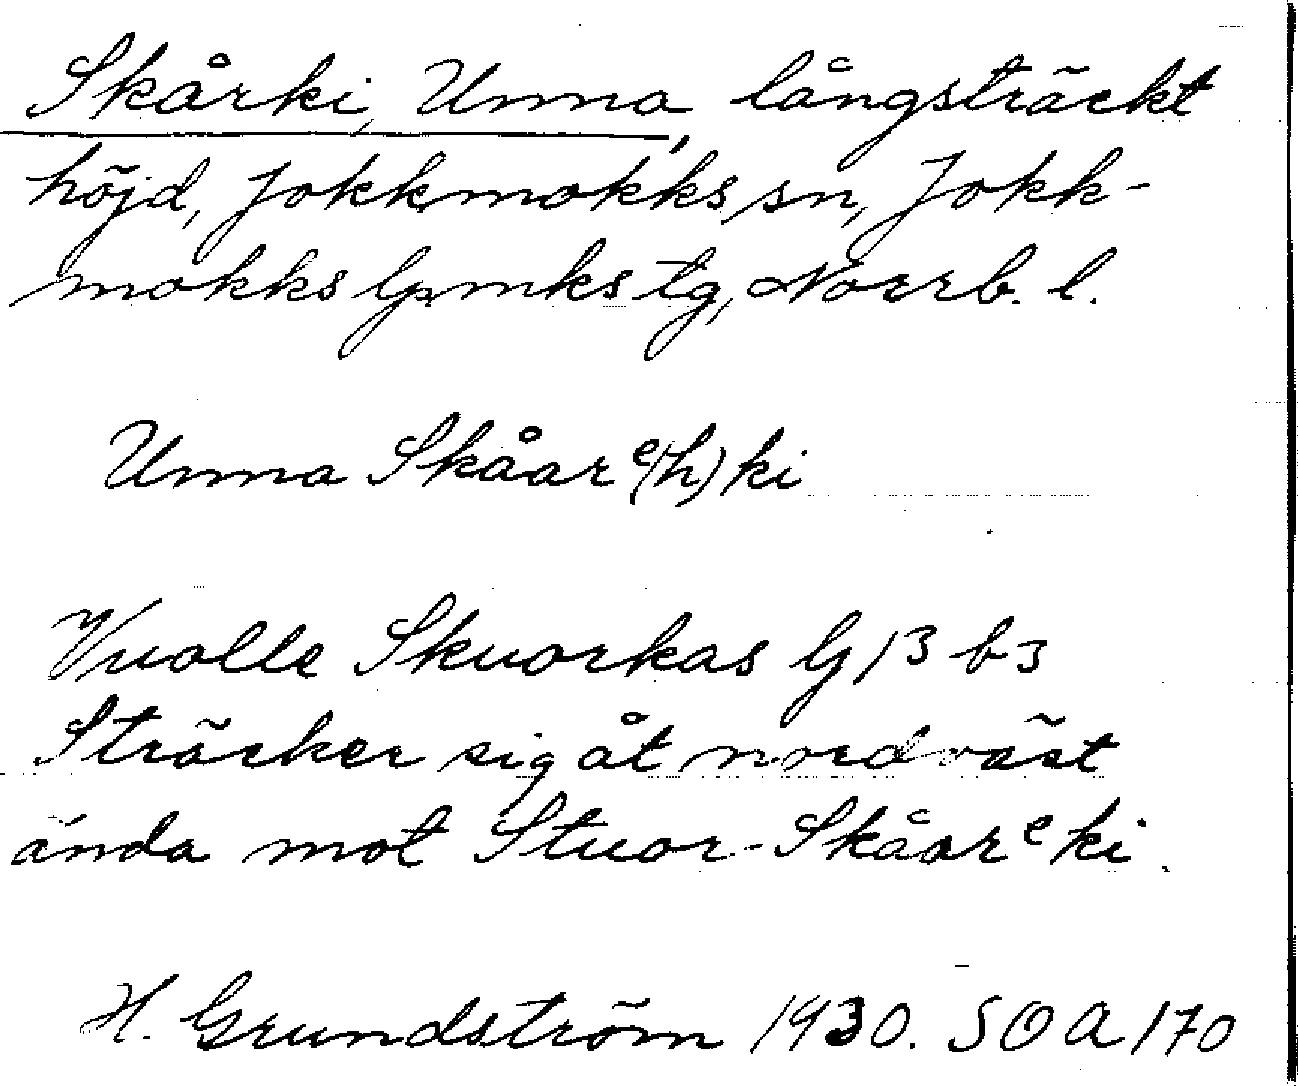 Skårki, Unna, långsträckt
höjd, Jokkmokks sn, Jokk-
mokks lpmks tg, Norrb. l.
Unna Skåarᵉ⁽ʰ⁾ki
Vuolle Skuorkas lj 13 b 3
Sträcker sig åt nordväst
ända mot Stuor-Skåarᵉki.
H. Grundström 1930. SOA 170